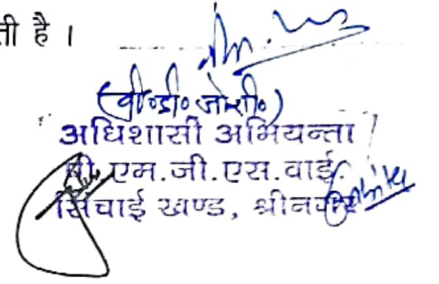 ती है ।
(बी०डी० जोशी०)
अधिशासी अभियन्ता
पी.एम.जी.एस.वाई.
सिंचाई खण्ड, श्रीनगर